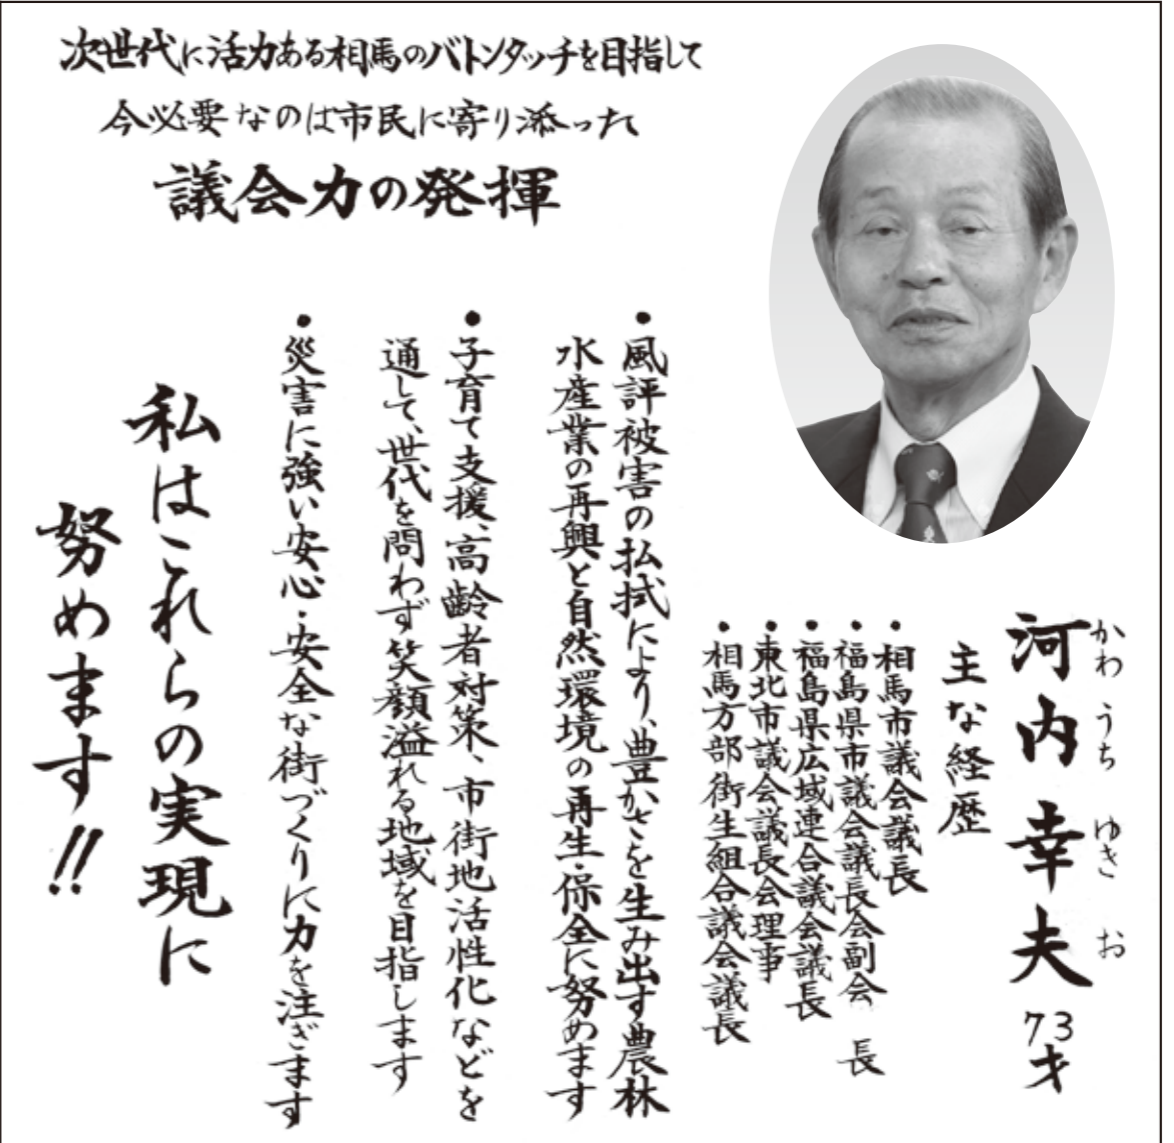 次世代に活力ある相馬のバトンタッチを目指して
今必要なのは市民に寄り添った
議会力の発揮
河内幸夫 73才
かわ うち ゆき お
主な経歴
•相馬市議会議長
•福島県市議会議長会副会 長
•福島県広域連合議会議長
•東北市議会議長会理事
•相馬方部街生組合議会議長
•風評被害の払拭により、豊かさを生み出す農林
水産業の再興と自然環境の再生・保全に努めます
•子育て支援、高齢者対策、市街地活性化などを
通して、世代を問わず笑顔溢れる地域を目指します
•災害に強い安心・安全な街づくりに力を注ぎます
私はこれらの実現に
努めます!!